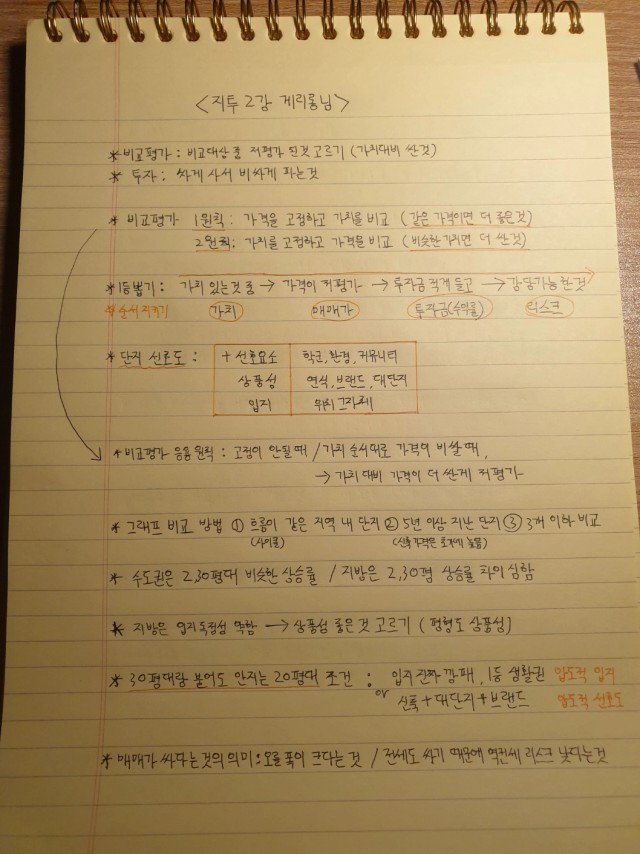 <지투 2강 게리롱님>
* 비교평가 : 비교대상 중 저평가 된것 고르기 (가치대비 싼것)
* 투자 : 싸게 사서 비싸게 파는것
* 비교평가 1원칙 : 가격을 고정하고 가치를 비교 (같은 가격이면 더 좋은것)
2원칙 : 가치를 고정하고 가격을 비교 (비슷한 가치면 더 싼것)
* 1등뽑기 : 가치 있는것 중 → 가격이 저평가 → 투자금 적게 들고 → 감당가능 한것
* 순서지키기 가치 매매가 투자금(수익률) 리스크
* 단지 선호도 : + 선호요소 학군, 환경, 커뮤니티
상품성 연식, 브랜드, 대단지
입지 위치 그자체
* 비교평가 응용 원칙 : 고정이 안될 때 / 가치 순서대로 가격이 비쌀 때,
→ 가치 대비 가격이 더 싼게 저평가
* 그래프 비교 방법 ① 흐름이 같은 지역 내 단지 ② 5년 이상 지난 단지 ③ 3개 이하 비교
(사이클) (신축가격은 초기에 높음)
* 수도권은 2,30평대 비슷한 상승률 / 지방은 2,30평 상승률 차이 심함
* 지방은 입지독점성 약함 → 상품성 좋은것 고르기 (평형도 상품성)
* 30평대랑 붙어도 안지는 20평대 조건 : 입지 진짜 깡패, 1등 생활권 압도적 입지
or 신축 + 대단지 + 브랜드 압도적 선호도
* 매매가 싸다는것의 의미 : 오를 폭이 크다는 것 / 전세도 싸기 때문에 역전세 리스크 낮다는것